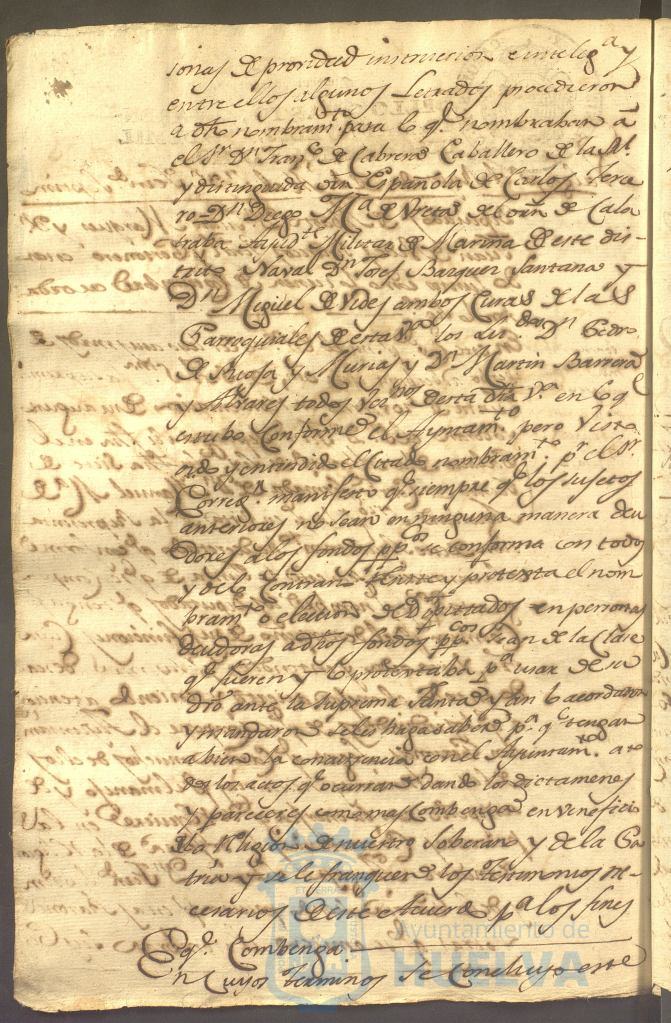 sonas de provided instruccion e intelig.ª y
entre ellos algunos Letrados procedieron
a dho nombram.to para lo q.e nombraban á
el S.r D.n Fran.co de Cabrera Caballero de la Rl
y distinguida orn Española de Carlos Terce
ro D.n Diego M.ª de Ureta del orn de Cala
traba Ayud.te Militar de Marina de este dis
trito Naval D.n Josef Barquer Santana y
D.n Miguel de Vides ambos Curas de las
Parroquiales de esta V.ª los Lis.dos D.n Pedro
de Sicosa y Murias y D.n Martin Barrera
y Alvares todos vecinos desta dha V.ª en lo q.e
estubo Conforme el Ayuntam.to pero Visto
oido y entendido el citado nombram.to p.r el S.r
Correg.r manifesto q.e siempre q.e los sujetos
anteriores no sean en ninguna manera deu
dores a los fondos pp.cos se conforma con todos
y de lo Contrario y protexta el nom
bram.to o eleccion de Diputados en personas
deudoras a dhos fondos pp.cos sean de la Clase
q.e fueren y lo protextaba p.ª usar de su
dro ante la suprema Junta y asi lo acordaron
y mandaron se les haga saber p.ª q.e tengan
a bien la concurrencia con el Ayuntam.to a to
dos los actos q.e ocurran dando los dictamenes
y pareceres como mas Combenga en veneficio
la Religion de nuestro Soberano y de la Pa
tria y se le franqueen los testimonios ne-
cesarios de este Acuerdo p.ª los fines
q.e Combenga.
En Cuyos terminos se Concluyo este
Ayuntamiento de
HUELVA